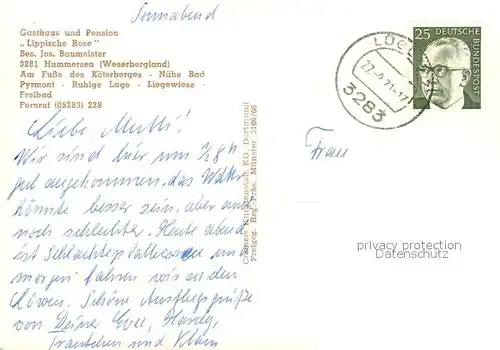 Sonnabend
Gasthaus und Pension
„Lippische Rose"
Bes. Jos. Baumeister
3281 Hummersen (Weserbergland)
Am Fuße des Köterberges - Nähe Bad
Pyrmont - Ruhige Lage - Liegewiese -
Freibad
Fernruf (05283) 228
Liebe Mutti!
Wir sind hier um 1/2 8 h
gut angekommen, das Wetter
könnte besser sein, aber auch
noch schlechter. Heute abend
ist Schlachteplattenessen und
morgen fahren wir zu den
Löwen. Schöne Ausflugsgrüße
von Deiner Evi, Hardy,
Frauchen und Klaus
Cramers Kunstanstalt KG, Dortmund
Freigeg. Reg.-Präs. Münster 3169/66
LÜG
22.-9.71-17
3283
25
DEUTSCHE
BUNDESPOST
Frau
privacy protection
Datenschutz